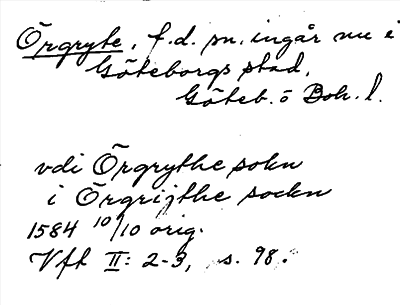 Örgryte, f.d. sn, ingår nu i
Göteborgs stad,
Göteb. o Boh. l.
vdi Örgrythe sokn
i Örgrijthe sockn
1584 10/10 orig.
Vfk II: 2-3, s. 98.